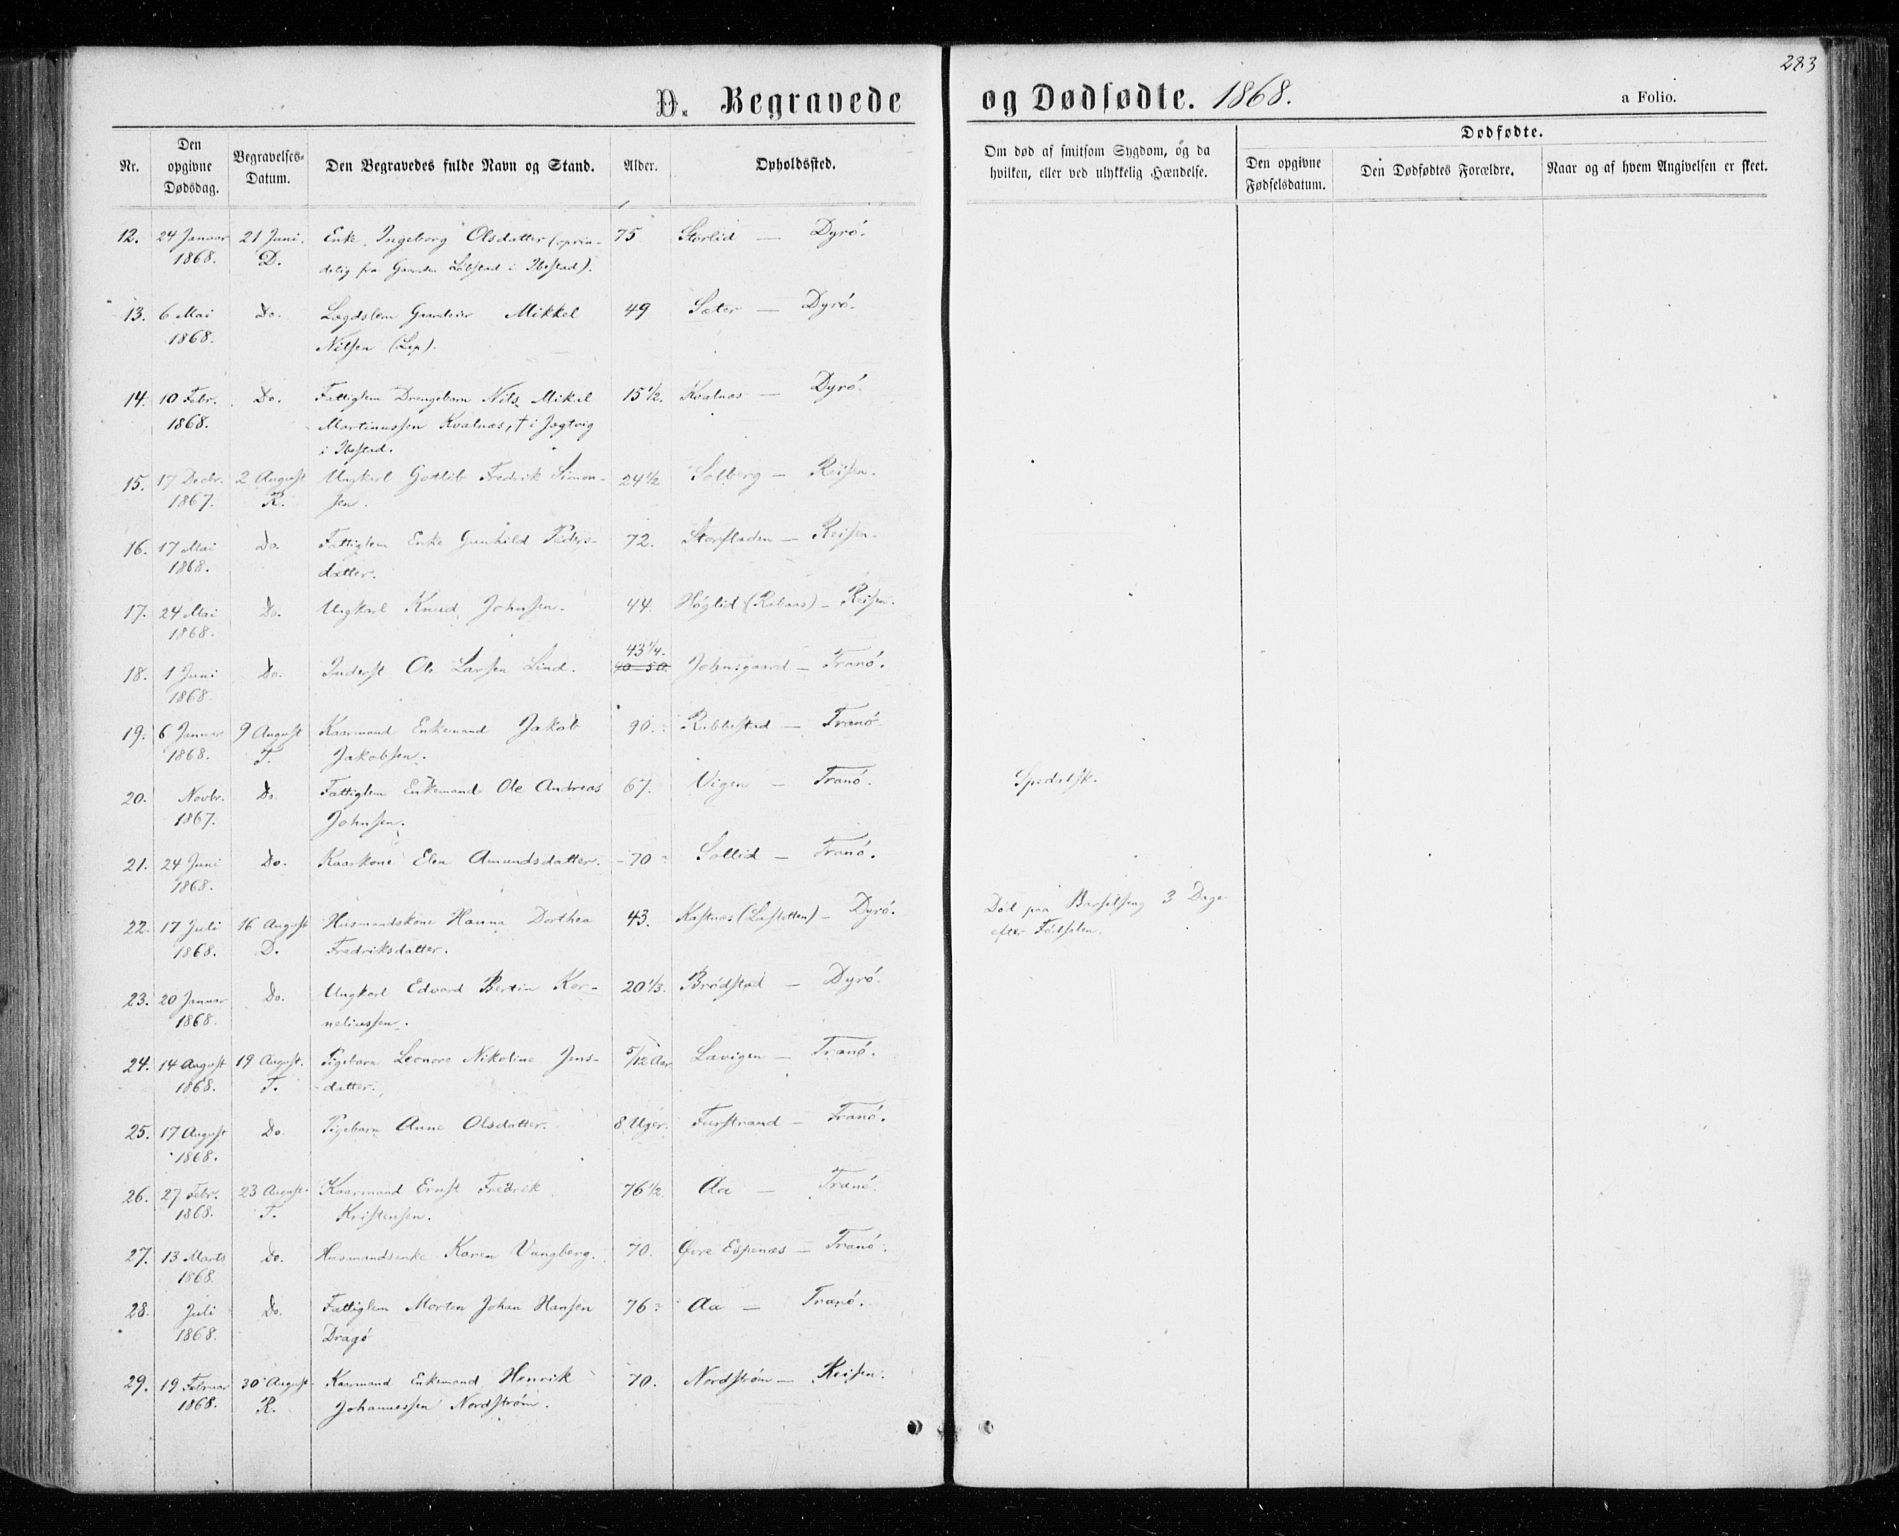 283
D. Begravede og Dødfødte. 1868.
a Folio.
Nr.
Den opgivne Dødsdag.
Begravelses-Datum.
Den Begravedes fulde Navn og Stand.
Alder.
Opholdssted.
Om død af smitsom Sygdom, og da hvilken, eller ved ulykkelig Hændelse.
Dødfødte.
Den opgivne Fødselsdatum.
Den Dødfødtes Forældre.
Naar og af hvem Angivelsen er skeet.
12. 24 Januar 21 Juni. Enke Ingeborg Olsdatter (oprin- 75 Storlid — Dyrö.
1868. D. delig fra Gaarden Lötstad i Ibestad).
13. 6 Mai Do. Lægdslem Gaardeier Mikkel 49 Sæter — Dyrö.
1868. Nilsen (Lap).
14. 10 Febr. Do. Fattiglem Drengebarn Nils Mikal 15 1/2. Kvalnæs — Dyrö.
1868. Martinussen Kvalnæs, † i Jægtvig
i Ibestad.
15. 17 Decbr. 2 August Ungkarl Gotlib Fredrik Simon- 24 1/2 Solberg — Reisen.
1867. R. sen.
16. 17 Mai Do. Fattiglem Enke Gunhild Peders- 72. Storsladen — Reisen.
1868. datter.
17. 24 Mai Do. Ungkarl Knud Johnsen. 44. Höglid (Rabaas) — Reisen.
1868.
43 1/4.
18. 1 Juni Do. Inderst Ole Larsen Lind. 40-50. Johnsgaard — Tranö.
1868.
19. 6 Januar 9 August Kaarmand Enkemand Jakob 90. Rubbestad — Tranö.
1868. T. Jakobsen.
20. Novbr. Do. Fattiglem Enkemand Ole Andreas 67. Vigen — Tranö. Spedalsk.
1867. Johnsen.
21. 24 Juni Do. Kaarkone Elen Amundsdatter. 70 Sollid — Tranö.
1868.
22. 17 Juli 16 August Husmandskone Hanna Dorthea 43. Kastnæs (Laksletten) — Dyrö. Död paa Barselseng 3 Dage
1868. D. Fredriksdatter. efter Födselen.
23. 20 Januar Do. Ungkarl Edvard Bertin Kor- 20 1/3. Brödstad — Dyrö.
1868. neliussen.
24. 14 August 19 August. Pigebarn Leonore Nikoline Jens- 5/12 Aar Lavigen — Tranö.
1868. T. datter.
25. 17 August Do. Pigebarn Anne Olsdatter. 8 Uger. Furstrand — Tranö.
1868.
26. 27 Febr. 23 August. Kaarmand Ernst Fredrik 76 1/2. Aa — Tranö.
1868. T. Kristensen.
27. 13 Marts Do. Husmandsenke Karen Vangberg. 70. Övre Espenæs — Tranö.
1868.
28. Juli Do. Fattiglem Morten Johan Hansen 76 Aa — Tranö.
1868. Dragö
29. 19 Februar 30 August Kaarmand Enkemand Henrik 70. Nordström — Reisen.
1868. R. Johannessen Nordström.